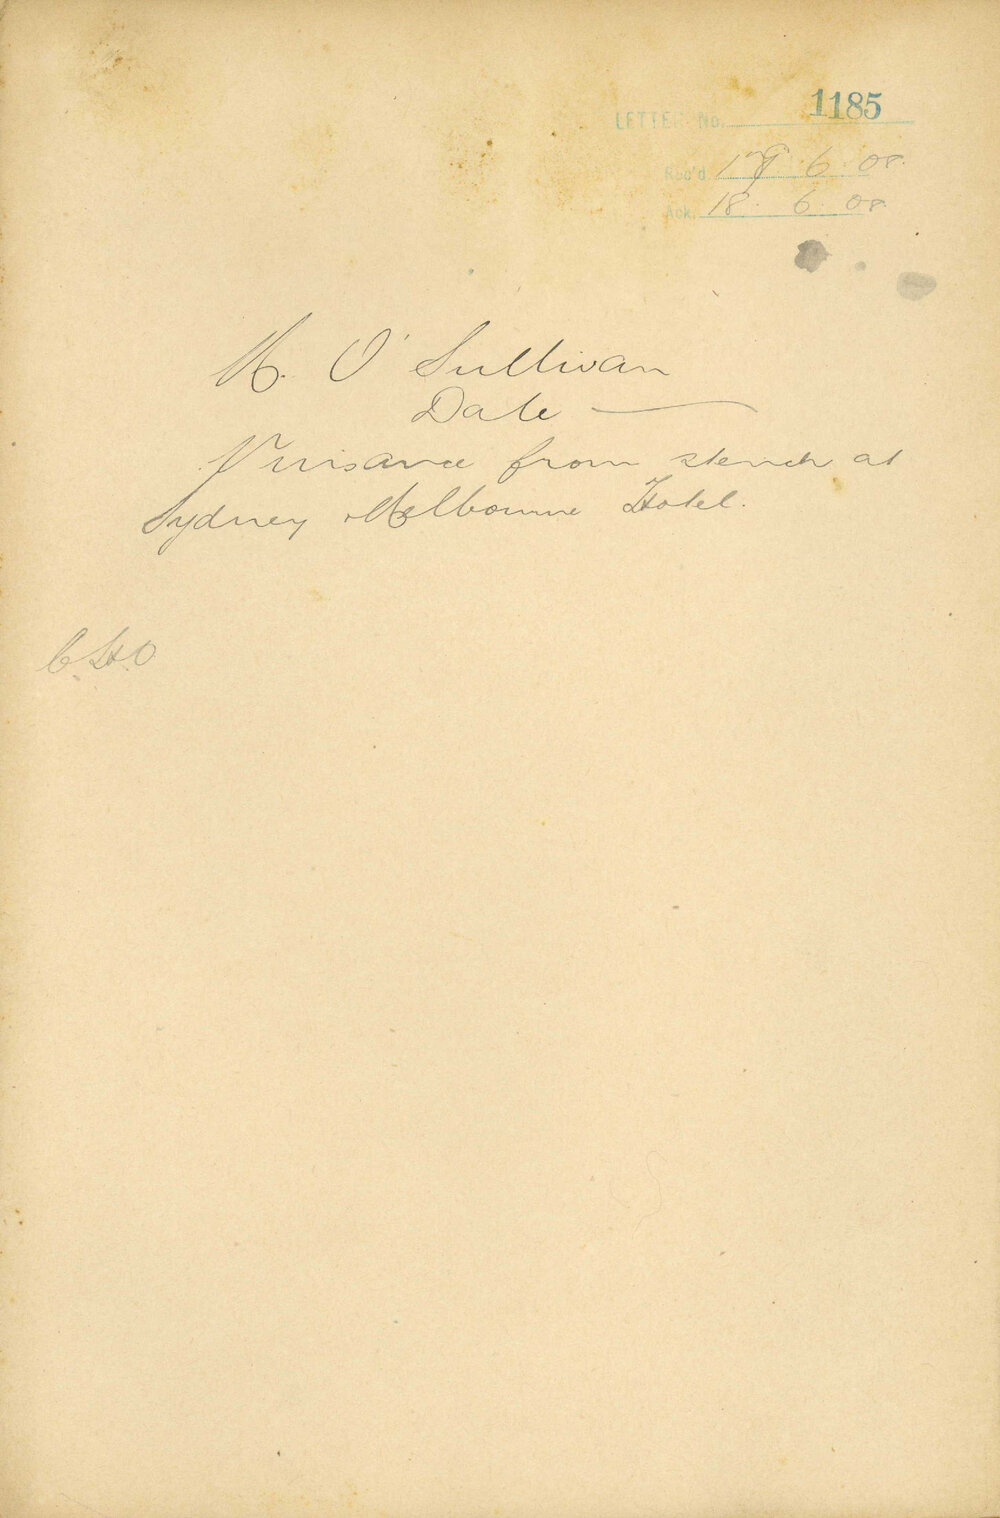 LETTER No. 1185
Rec'd. 17 6 08
Ack. 18. 6. 08
M. O'Sullivan
Date —
Nuisance from stench at
Sydney Melbourne Hotel.
C.H.O